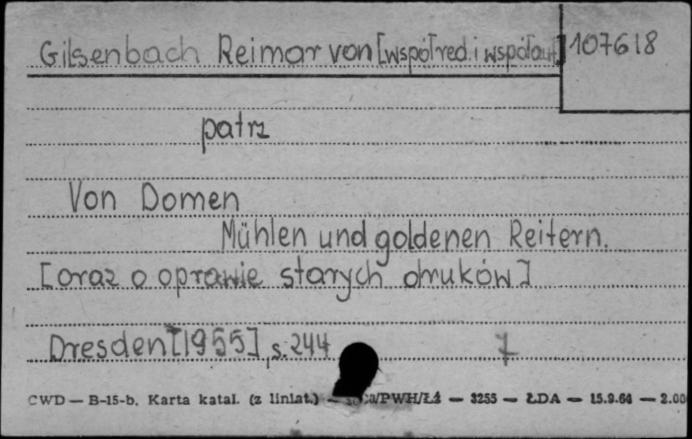 Gilsenbach Reimar von [współred. i współaut.] 107618
patrz
Von Domen
Mühlen und goldenen Reitern.
[oraz o oprawie starych druków]
Dresden [1955], s. 244
CWD — B-15-b. Karta katal. (z liniat.) — /PWH/Łż — 3255 — ŁDA — 15.9.64 — 2.00